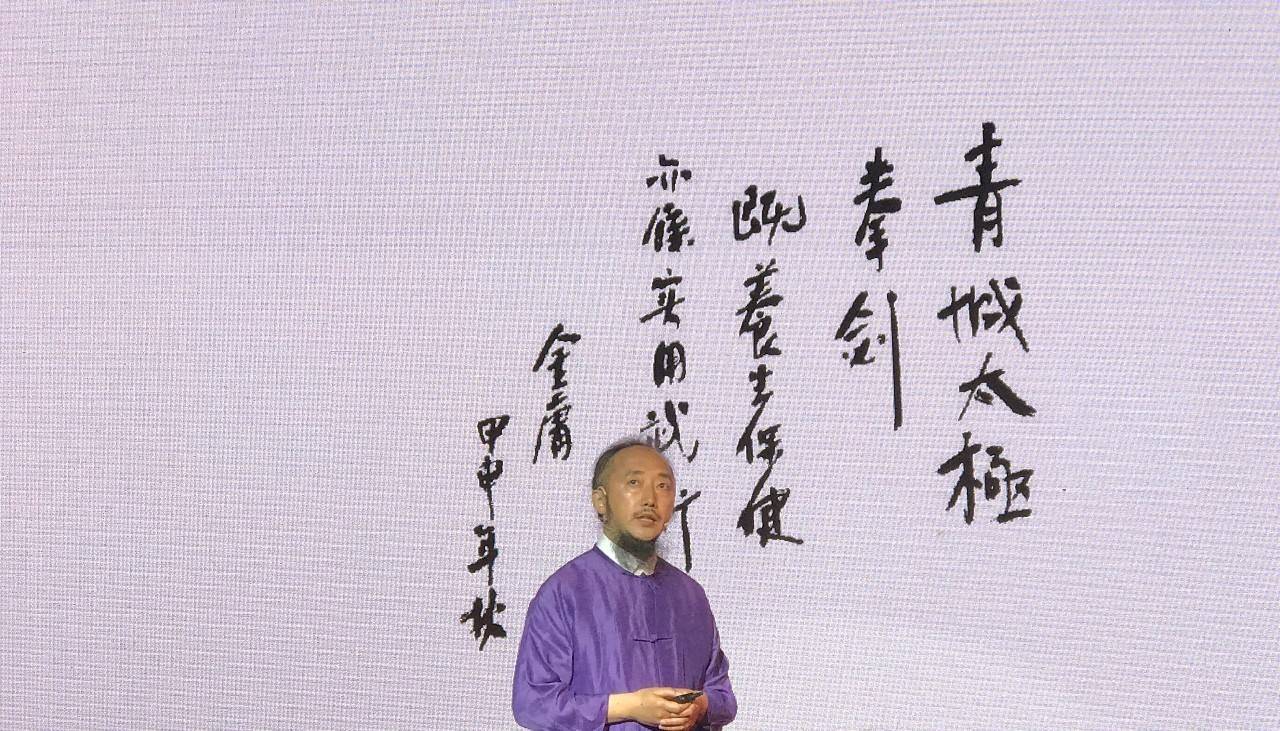 青城太極
拳劍
既養生保健
亦係實用武
金庸
甲申年秋